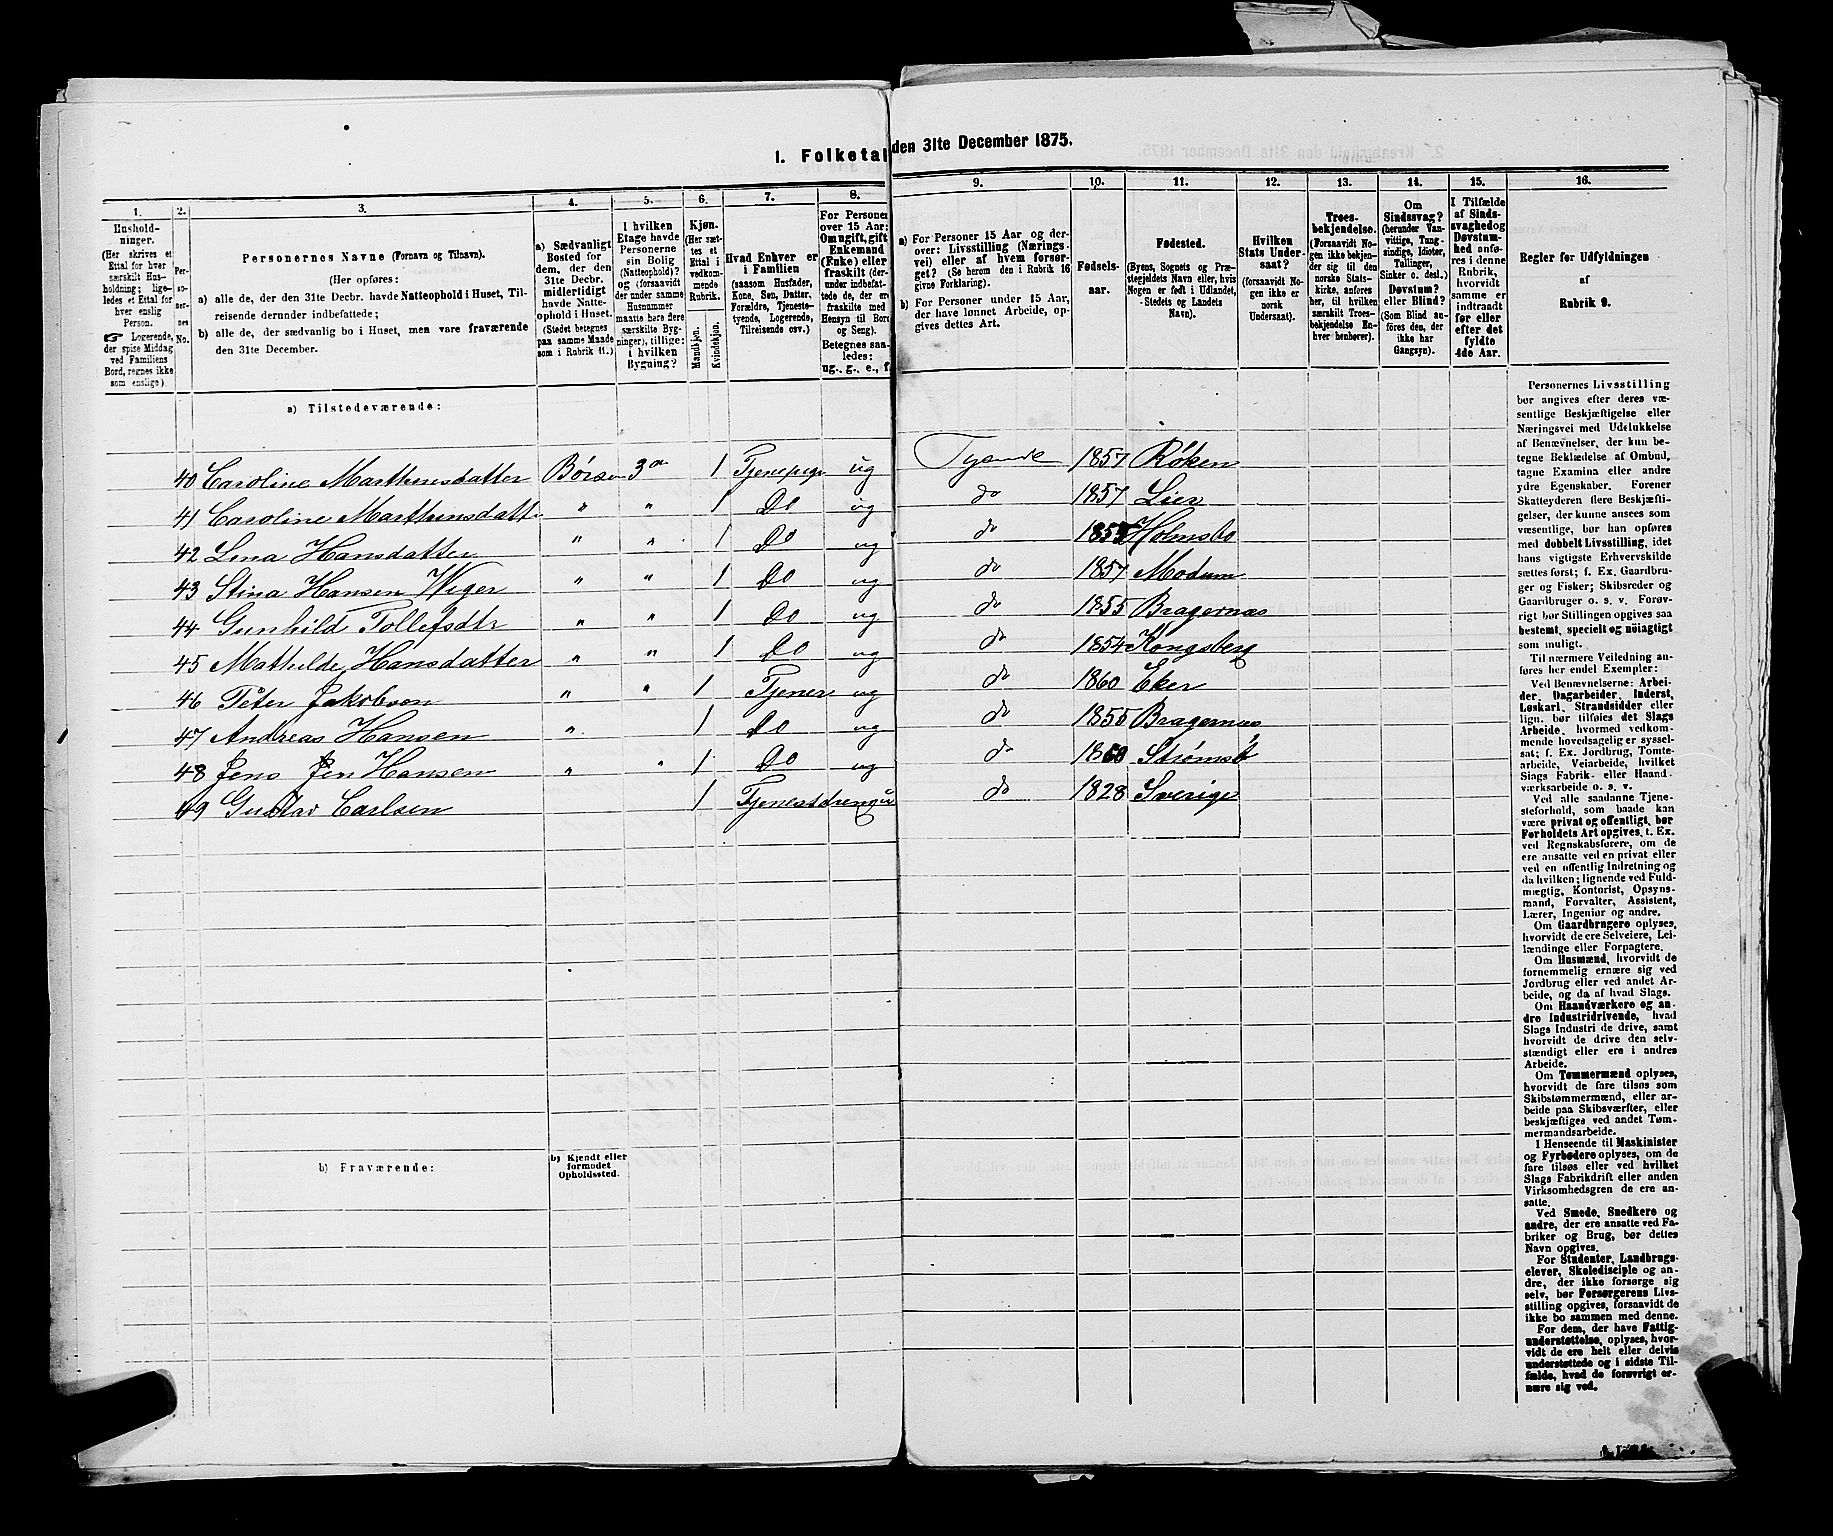 I. Folketal den 31te December 1875.
1.
Husholdninger.
(Her skrives et
Ettal for hver
særskilt Husholdning;
ligeledes et Ettal for
hver enslig
Person.
☞ Logerende,
der spise Middag
ved Familiens
Bord, regnes ikke
som enslige).
2.
Personernes
No.
3.
Personernes Navne (Fornavn og Tilnavn).
(Her opføres:
a) alle de, der den 31te Decbr. havde Natteophold i Huset, Tilreisende
derunder indbefattede;
b) alle de, der sædvanlig bo i Huset, men vare fraværende
den 31te December.
4.
a) Sædvanligt
Bosted for
dem, der den
31te Decbr.
midlertidigt
havde Natteophold
i Huset.
(Stedet betegnes
paa samme Maade
som i Rubrik 11.)
5.
I hvilken
Etage havde
Personerne
sin Bolig
(Natteophold)?
og (forsaavidt
der under samme
Husnummer
maatte høre flere
særskilte Bygninger),
tillige:
i hvilken
Bygning?
6.
Kjøn.
(Her sættes
et
Ettal i
vedkommende
Rubrik.
Mandkjøn.
Kvindekjøn.
7.
Hvad Enhver er
i Familien
(saasom Husfader,
Kone, Søn, Datter,
Forældre, Tjenestetyende,
Logerende,
Tilreisende osv.)
8.
For Personer
over 15 Aar:
Om ugift, gift
Enkemand
(Enke) eller
fraskilt (derunder
indbefattede,
der ere
fraskilte med
Hensyn til Bord
og Seng).
Betegnes saaledes:
ug., g., e., f.
9.
a) For Personer 15 Aar og derover:
Livsstilling (Næringsvei)
eller af hvem forsørget?
(Se herom den i Rubrik 16
givne Forklaring).
b) For Personer under 15 Aar,
der have lønnet Arbeide, opgives
dettes Art.
10.
Fødselsaar.
11.
Fødested.
(Byens, Sognets og Præstegjeldets
Navn eller, hvis
Nogen er født i Udlandet,
Stedets og Landets
Navn).
12.
Hvilken
Stats Undersaat?
(forsaavidt Nogen
ikke er
norsk
Undersaat).
13.
Troesbekjendelse.
(Forsaavidt Nogen
ikke bekjender
sig til den
norske Statskirke,
anføres
her, til hvilken
særskilt Troesbekjendelse
Enhver
henhører).
14.
Om
Sindssvag?
(herunder Vanvittige,
Tungsindige,
Idioter,
Tullinger,
Sinker o. desl.)
Døvstum?
eller Blind?
(Som Blind
anføres den, der
ikke har
Gangsyn).
15.
I Tilfælde
af Sindssvaghed
og
Døvstumhed
anføres
i denne
Rubrik,
hvorvidt
samme er
indtraadt
før eller
efter det
fyldte
4de Aar.
16.
Regler for Udfyldningen
af
Rubrik 9.
a) Tilstedeværende:
40 Caroline Marthinsdatter Børsen 3die 1 Tjenepige ug Tyende 1857 Røken
41 Caroline Marthinsdatt. " " 1 Do ug do 1857 Lier
42 Lina Hansdatter " " 1 Do ug do Holmsbo
43 Stina Hansen Wiger " " 1 Do ug do 1857 Modum
44 Gunhild Tollefsdtr " " 1 Do ug do 1855 Bragernæs
45 Mathilde Hansdatter " " 1 Do ug do 1854 Kongsberg
46 Peter Jakobsen " " 1 Tjener ug do 1860 Eker
47 Andreas Hansen " 1 Do ug do 1855 Bragernæs
48 Jens Hansen " " 1 Do ug do 1860 Strømsø
49 Gustav Carlsen 1 Tjenestdreng ug do 1828 Sverige
b) Fraværende:
b) Kjendt eller
formodet
Opholdssted.
Personernes Livsstilling
bør angives efter deres væsentlige
Beskjæftigelse eller
Næringsvei med Udelukkelse
af Benævnelser, der kun betegne
Beklædelse af Ombud,
tagne Examina eller andre
ydre Egenskaber. Forener
Skatteyderen flere Beskjæftigelser,
der kunne ansees som
væsentlige, bør han opføres
med dobbelt Livsstilling, idet
hans vigtigste Erhvervskilde
sættes først; f. Ex. Gaardbruger
og Fisker; Skibsreder og
Gaardbruger o. s. v. Forøvrigt
bør Stillingen opgives saa
bestemt, specielt og nøiagtigt
som muligt.
Til nærmere Veiledning anføres
her endel Exempler:
Ved Benævnelserne: Arbeider,
Dagarbeider, Inderst,
Løskarl, Strandsidder eller
lign. bør tilføies det Slags
Arbeide, hvormed vedkommende
hovedsagelig er sysselsat;
f. Ex. Jordbrug, Tomtearbeide,
Veiarbeide, hvilket
Slags Fabrik- eller Haandværksarbeide
o. s. v.
Ved alle saadanne Tjenesteforhold,
som baade kan
være privat og offentligt, bør
Forholdets Art opgives, t. Ex.
ved Regnskabsførere, om de
ere ansatte ved en privat eller
ved en offentlig Indretning og
da hvilken; lignende ved Fuldmægtig,
Kontorist, Opsynsmand,
Forvalter, Assistent,
Lærer, Ingeniør og andre.
Om Gaardbrugere oplyses,
hvorvidt de ere Selveiere, Leilændinge
eller Forpagtere.
Om Husmænd, hvorvidt de
fornemmelig ernære sig ved
Jordbrug eller ved andet Arbeide,
og da af hvad Slags.
Om Haandværkere og andre
Industridrivende, hvad
Slags Industri de drive, samt
hvorvidt de drive den selvstændigt
eller ere i andres
Arbeide.
Om Tømmermænd oplyses,
hvorvidt de fare tilsøs som
Skibstømmermænd, eller arbeide
paa Skibsværfter, eller
beskjæftiges ved andet Tømmermandsarbeide.
I Henseende til Maskinister
og Fyrbødere oplyses, om de
fare tilsøs eller ved hvilket
Slags Fabrikdrift eller anden
Virksomhedsgren de ere ansatte.
Ved Smede, Snedkere og
andre, der ere ansatte ved Fabriker
og Brug, bør dettes
Navn opgives.
For Studenter, Landbrugselever,
Skoledisciple og andre,
der ikke forsørge sig
selv, bør Forsørgerens Livsstilling
opgives, forsaavidt de
ikke bo sammen med denne.
For dem, der have Fattigunderstøttelse,
oplyses, hvorvidt
de ere helt eller delvis
understøttede og i sidste Tilfælde,
hvad de forøvrigt ernære
sig ved.